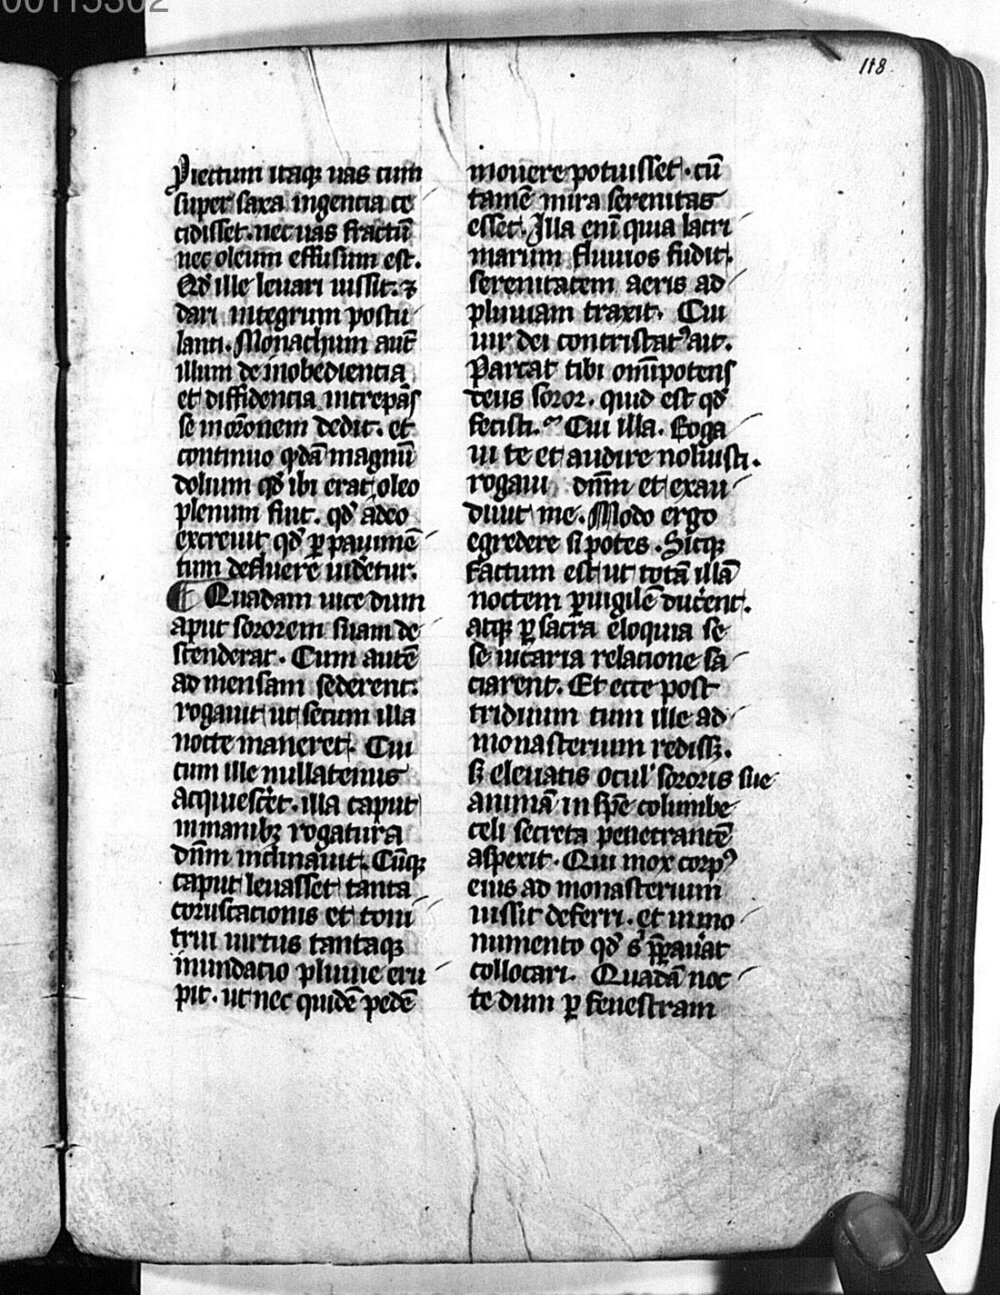 00115302
118
Piectum itaqꝫ uas cum
super saxa ingentia ce
cidisset. nec uas fractū
nec oleum effusum est.
Qd̕ ille leuari iussit. ⁊
dari integrum postu
lanti. Monachum aut̄
illum de inobediencia
et diffidentia increpās
se in or̄onem dedit. et
continuo qͥdā magnū
dolium qd̕ ibi erat oleo
plenum fiut. qd̕ adeo
excreuit qd̕ ꝑ pauimē
tum defluere uidetur.
¶ Quadam uice dum
aput sororem suam de
scenderat. Cum autē
ad mensam sederent.
rogauit ut secum illa
nocte maneret. Cui
cum ille nullatenus
acquiesc̕et. illa caput
in manibꝫ rogatura
dn̄m inclinauit. Cūqꝫ
caput leuasset tanta
coruscationis et toni
trui uirtus tantaqꝫ
inundacio pluuie eru
pit. ut nec quidē pedē
mouere potuisset. cū
tamē mira serenitas
esset. Illa eni̅ quia lacri
marum fluuios fudit.
serenitatem aeris ad
pluuiam traxit. Cui
uir dei contristatꝰ ait.
Parcat tibi om̄ipotens
deus soror. quid est qd̕
fecisti. Cui illa. Roga
ui te et audire noluisti.
rogaui dn̄m et exau
diuit me. Modo ergo
egredere si potes. Sicqꝫ
factum est ut totā illā
noctem ꝑuigilē duc̕ent.
atqꝫ ꝑ sacra eloquia se
se uicaria relacione sa
ciarent. Et ecce post
triduum cum ille ad
monasterium redissꝫ.
sꝫ eleuatis ocul̕ sororis sue
animā in sp̄e columbe
celi secreta penetrantē
aspexit. Qui mox corpꝰ
eius ad monasterium
iussit deferri. et in mo
numento qd̕ s̕ p̄ꝑau̕at
collocari. Quadā noc
te dum ꝑ fenestram